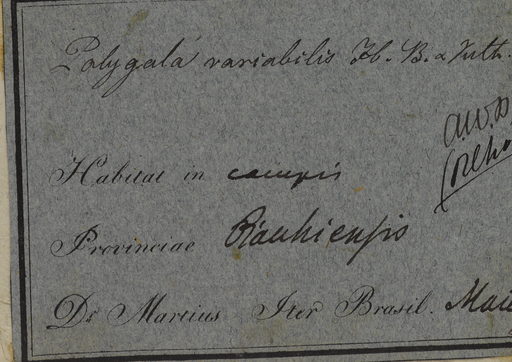 Polygala variabilis H. B. & Kuth.
A.W.B.
Habitat in campis
Provinciae Piauhiensis
Dr Martius Iter Brasil. Mai